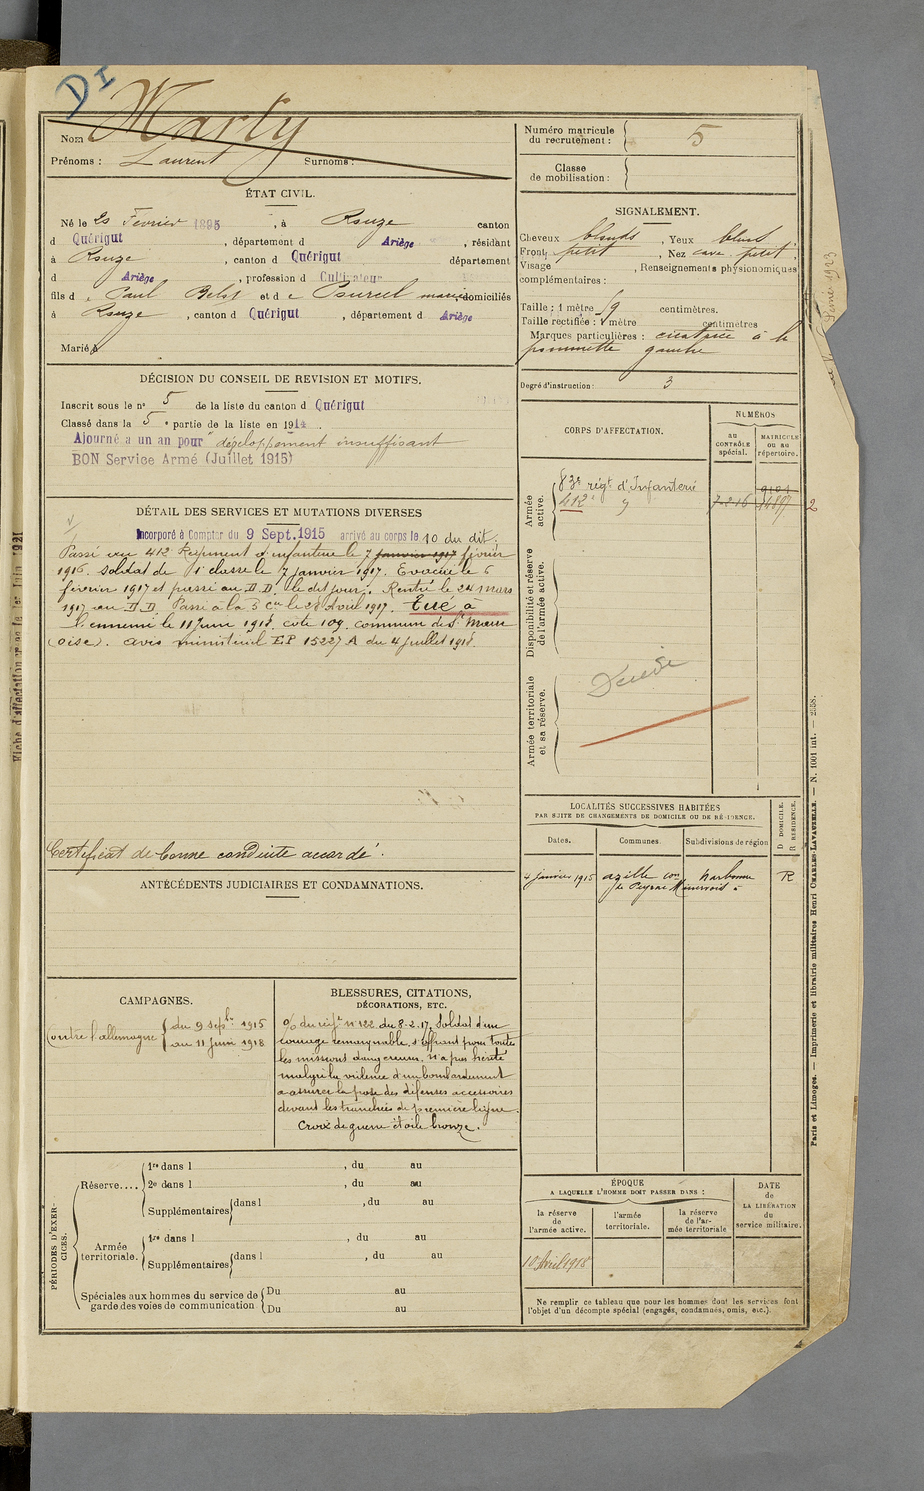 DI
Nom Marty
Prénoms : Laurent Surnoms :
ÉTAT CIVIL.
Né le 20 Février 1895, à Rouze canton
d Quérigut, département d Ariège, résidant
à Rouze, canton d Quérigut département
d Ariège, profession d Cultivateur
fils d e Paul Belot et d e domiciliés
à Rouze, canton d Quérigut, département d Ariège
Marié à
DÉCISION DU CONSEIL DE REVISION ET MOTIFS.
Inscrit sous le n° 5 de la liste du canton d Quérigut
Classé dans la 5 e partie de la liste en 1914.
Ajourné a un an pour développement insuffisant
BON Service Armé (Juillet 1915)
DÉTAIL DES SERVICES ET MUTATIONS DIVERSES
Incorporé à Compter du 9 Sept. 1915 arrivé au corps le 10 du dit.
Passé au 412e Régiment d'infanterie le 7 janvier 1917 février
1916. soldat de 1e classe le 7 janvier 1917. Evacué le 6
février 1917 et passé au D.D. le dit jour. Rentré le 24 mars
1917 au D.D. Passé à la 5 Cie le 28 Avril 1917. Tué à
l'ennemi le 11 Juin 1918. cote 109. commune de St Maur
(oise). avis ministériel E.P 15227 A du 4 juillet 1918.
Certificat de bonne conduite accordé.
ANTÉCÉDENTS JUDICIAIRES ET CONDAMNATIONS.
CAMPAGNES.
Contre l'allemagne du 9 sepbre 1915
au 11 juin 1918
BLESSURES, CITATIONS,
DÉCORATIONS, ETC.
% du régt n° 122 du 8.2.17. Soldat d'un
courage remarquable, s'offrant pour toutes
les missions dangereuses, n'a pas hésité
malgré la violence d'un bombardement
a assurer la pose des défenses accessoires
devant les tranchées de première ligne.
Croix de guerre étoile bronze.
PÉRIODES D'EXERCICES.
Réserve....
1re dans l , du au
2e dans l , du au
Supplémentaires dans l , du au
Armée territoriale.
1re dans l , du au
Supplémentaires dans l , du au
Spéciales aux hommes du service de garde des voies de communication
Du au
Du au
Numéro matricule du recrutement : 5
Classe de mobilisation :
SIGNALEMENT.
Cheveux blonds, Yeux bleus
Front petit, Nez cave, petit,
Visage , Renseignements physionomiques
complémentaires :
Taille : 1 mètre 59 centimètres.
Taille rectifiée : 1 mètre centimètres
Marques particulières : cicatrice à la
pommette gauche
Degré d'instruction : 3
CORPS D'AFFECTATION.
NUMÉROS
au contrôle spécial.
matricule ou au répertoire.
Armée active.
83e régt d'Infanterie 9101
412e 7-2-16 14897 2
Disponibilité et réserve de l'armée active.
Armée territoriale et sa réserve.
Décédé
LOCALITÉS SUCCESSIVES HABITÉES
PAR SUITE DE CHANGEMENTS DE DOMICILE OU DE RÉSIDENCE.
D DOMICILE.
R RÉSIDENCE.
Dates. Communes. Subdivisions de région
4 janvier 1915 azille con Narbonne R
de Peyriac Minervois
ÉPOQUE
A LAQUELLE L'HOMME DOIT PASSER DANS :
DATE de LA LIBÉRATION du service militaire.
la réserve de l'armée active.
l'armée territoriale.
la réserve de l'armée territoriale
10 Avril 1918
Ne remplir ce tableau que pour les hommes dont les services font
l'objet d'un décompte spécial (engagés, condamnés, omis, etc.).
Paris et Limoges. — Imprimerie et librairie militaires Henri CHARLES-LAVAUZELLE. — N. 1001 int. — 2558.